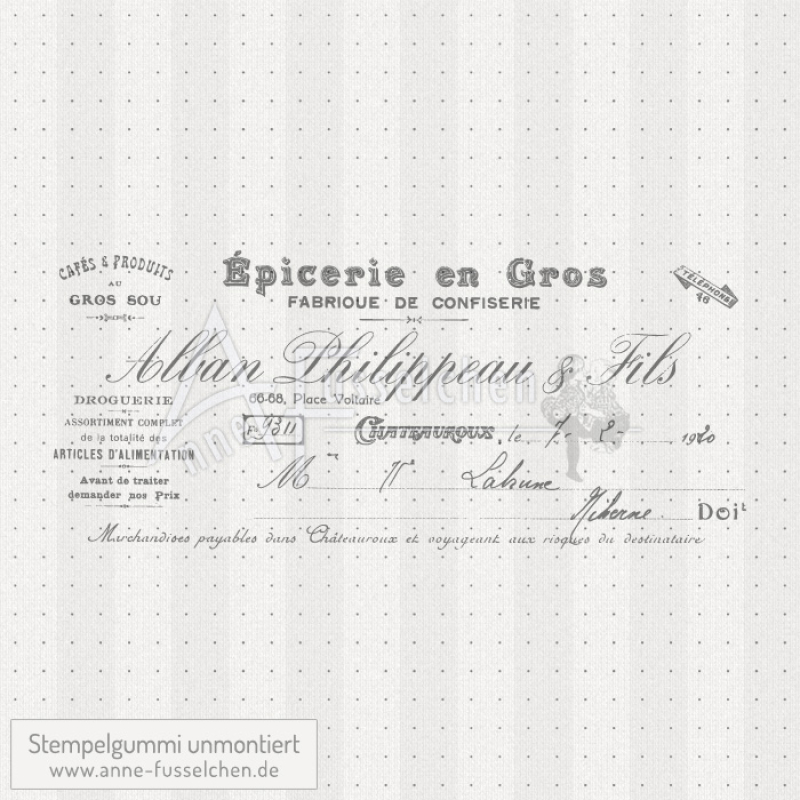 CAFÉS & PRODUITS
AU
GROS SOU
Épicerie en Gros
FABRIQUE DE CONFISERIE
TÉLÉPHONE
46
Alban Philippeau & Fils
66-68, Place Voltaire
DROGUERIE
ASSORTIMENT COMPLET
de la totalité des
ARTICLES D'ALIMENTATION
Avant de traiter
demander nos Prix
Fo 9311
CHATEAUROUX, le 7- 2- 1920
M Labrune
Niherne. Doit
Marchandises payables dans Châteauroux et voyageant aux risques du destinataire
Anne Fusselchen
Stempelgummi unmontiert
www.anne-fusselchen.de